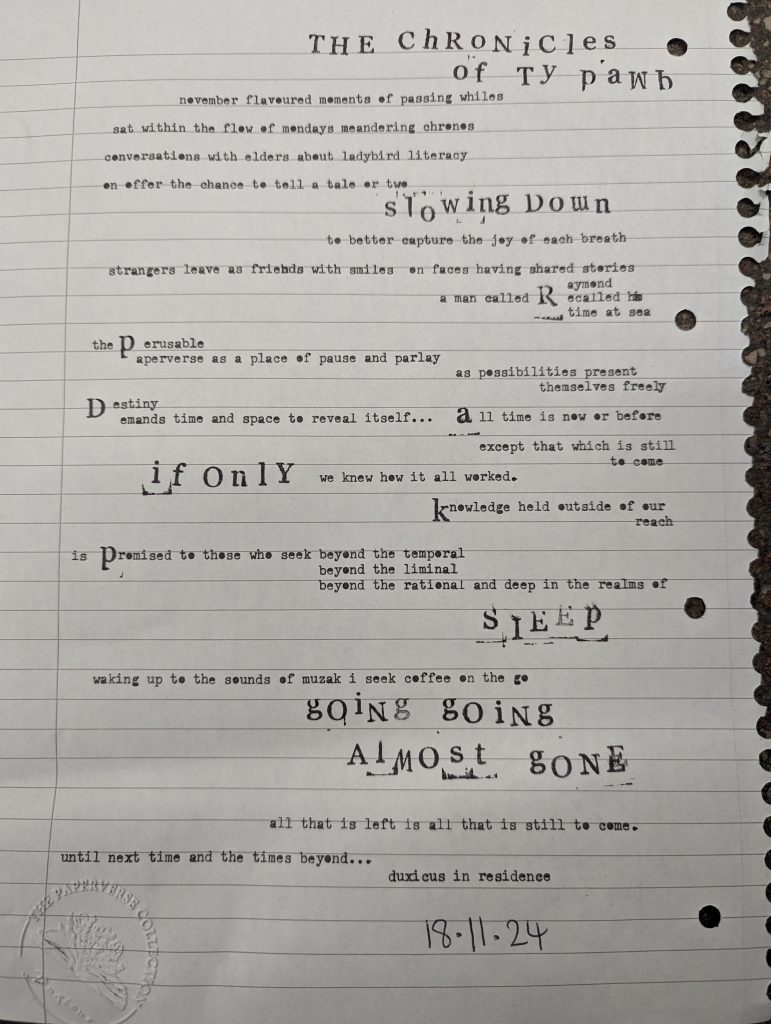 THE ChRoNiCles
of Ty pawb
november flavoured moments of passing whiles
sat within the flow of mondays meandering chronos
conversations with elders about ladybird literacy
on offer the chance to tell a tale or two
slowing Down
to better capture the joy of each breath
strangers leave as friends with smiles on faces having shared stories
a man called Raymond
Recalled his
time at sea
the Perusable
Paperverse as a place of pause and parlay
as possibilities present
themselves freely
Destiny
Demands time and space to reveal itself... all time is now or before
except that which is still
to come
if OnlY we knew how it all worked.
knowledge held outside of our
reach
is Promised to those who seek beyond the temporal
beyond the liminal
beyond the rational and deep in the realms of
SlEEp
waking up to the sounds of muzak i seek coffee on the go
gOiNg gOiNg
AlMOst gONE
all that is left is all that is still to come.
until next time and the times beyond...
duxicus in residence
18.11.24
THE PAPERVERSE COLLECTION